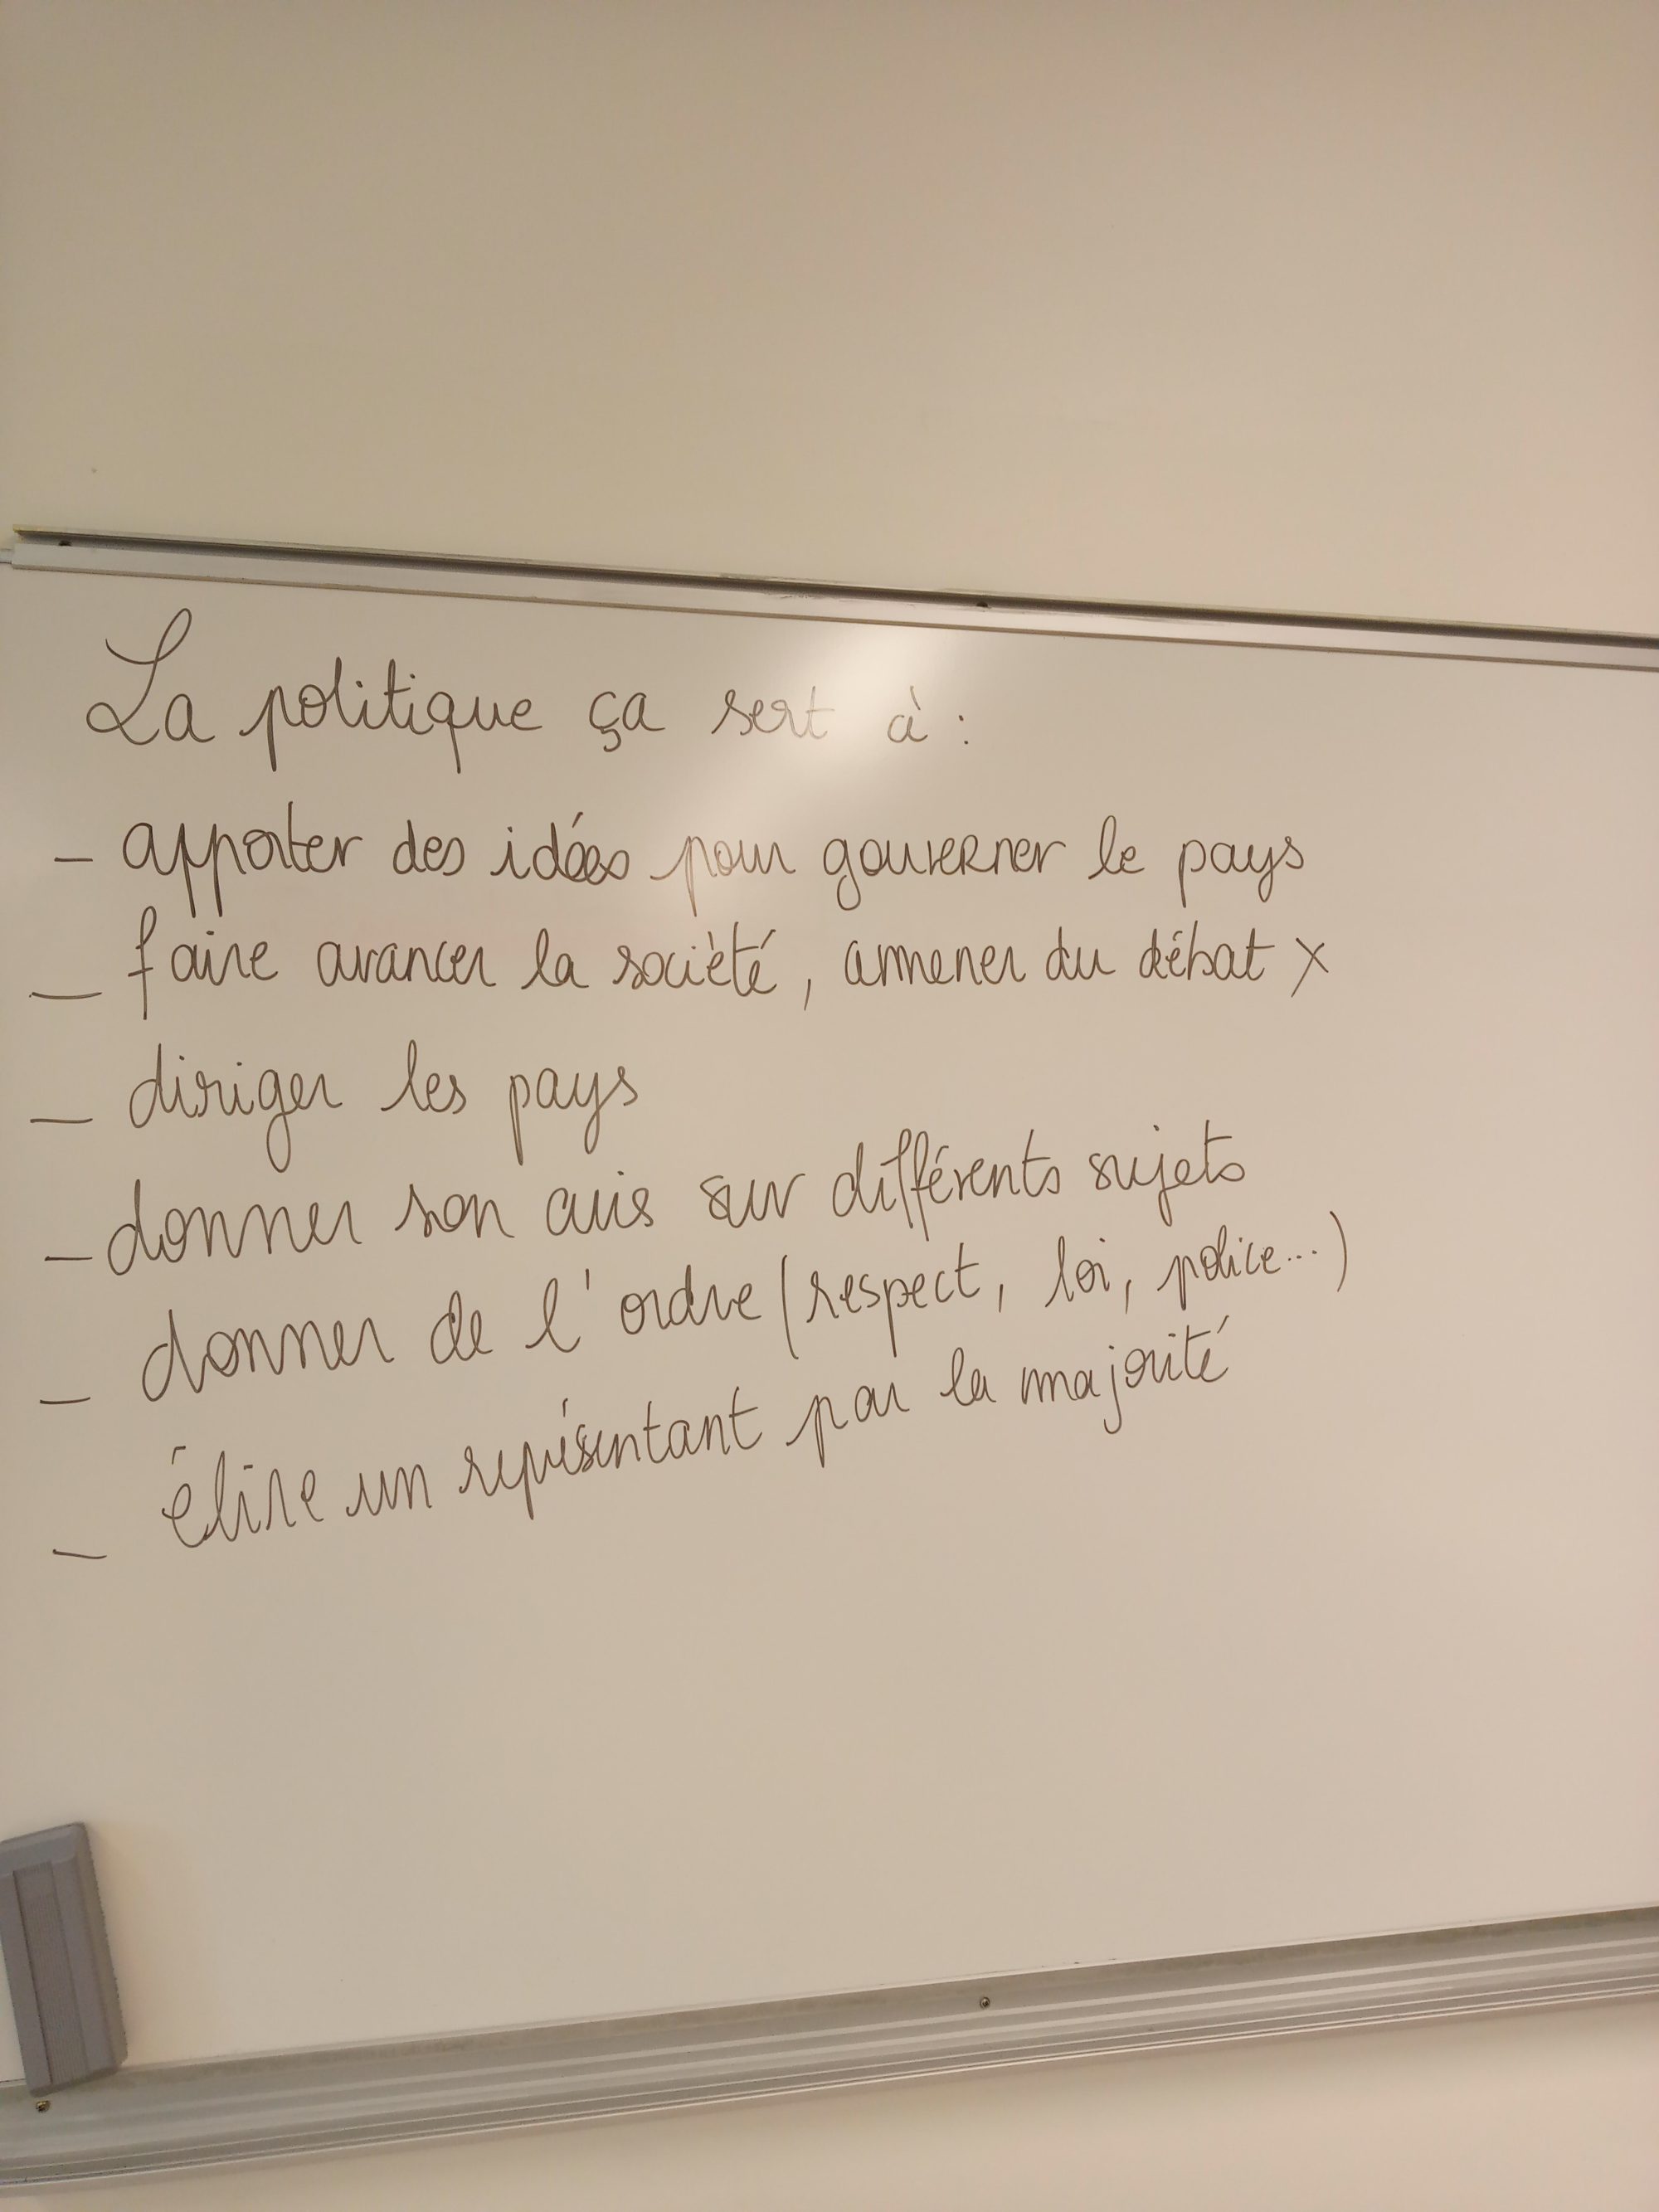 La politique ça sert à :
- apporter des idées pour gouverner le pays
- faire avancer la société, ammener du débat x
- diriger les pays
- donner son avis sur différents sujets
- donner de l'ordre (respect, loi, police...)
- élire un représentant par la majorité